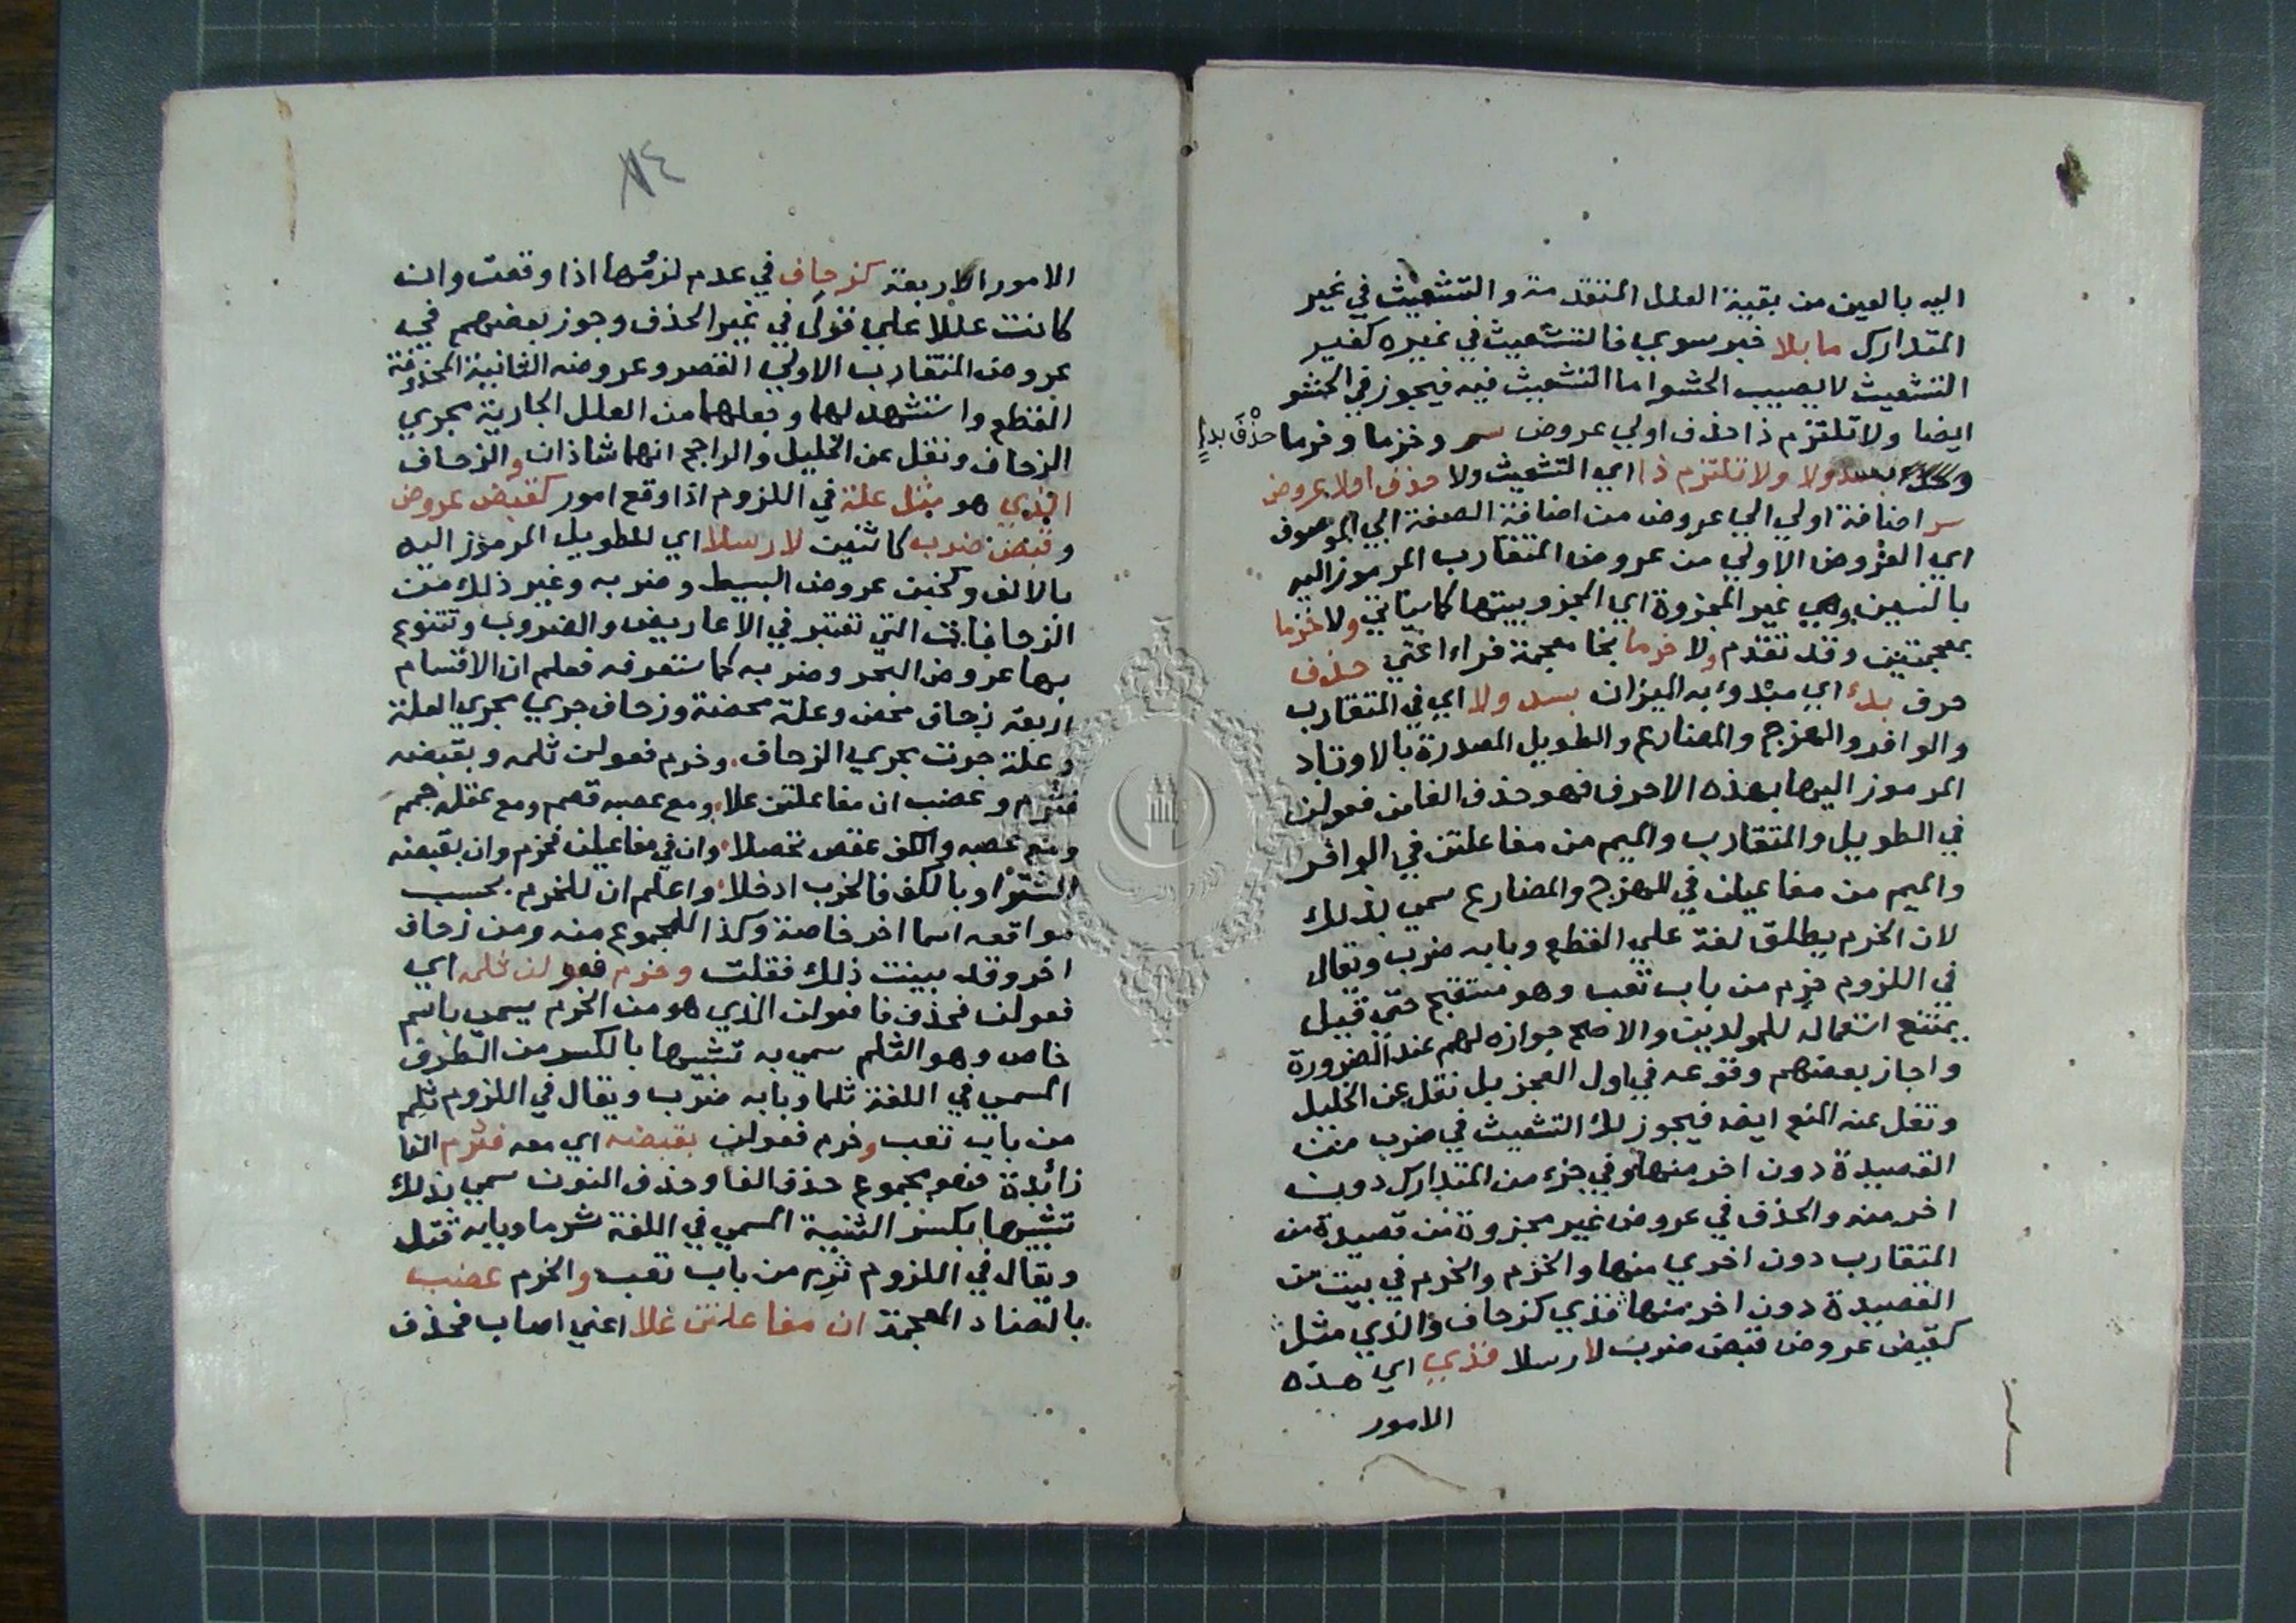 اليه بالعين من بقية العلل المتقدمة والتشعيث في غير
المتدارك ما بلا فيه سوي فالتشعيث في غيره كغير
التشعيث لا يصيب الحشو اما التشعيث فيه فيجوز في الحشو
ايضا ولا تلتزم ذا حذف اولي عروض سر وخزما وخرما حذف بدء
بسد ولا ولا تلتزم ذا اي التشعيث ولا حذف اولا عروض
سر اضافة اولي الي عروض من اضافة الصفة الي الموصوف
اي العروض الاولي من عروض المتقارب المرموز اليه
بالسين وهي غير المجزوة اي المجزو بيتها كما سياتي ولا خزما
بمعجمتين وقد تقدم ولا خرما بخا معجمة فراء اعني حذف
حرف بدء اي مبدوء به الميزان بسد ولا اي في المتقارب
والوافر والهزج والمضارع والطويل المصدرة بالاوتاد
المرموز اليها بهذه الاحرف فهو حذف الفا من فعولن
في الطويل والمتقارب والميم من مفاعلتن في الوافر
والميم من مفاعيلن في الهزج والمضارع سمي بذلك
لان الخرم يطلق لغة علي القطع وبابه ضرب ويقال
في اللزوم خرم من باب تعب وهو مستقبح حتي قيل
يمتنع استعماله للمولدين والاصح جوازه لهم عند الضرورة
واجاز بعضهم وقوعه في اول العجز بل نقل عن الخليل
ونقل عنه المنع ايضه فيجوز لك التشعيث في ضرب من
القصيدة دون اخر منها وفي جزء من المتدارك دون
اخر منه والحذف في عروض غير مجزوة من قصيدة من
المتقارب دون اخري منها والخزم والخرم في بيت من
القصيدة دون اخر منها فذي كزحاف والذي مثل
كقبض عروض قبض ضرب لا رسلا فذي اي هذه
الامور
٨٤
الامور الاربعة كزحاف في عدم لزومها اذا وقعت وان
كانت عللا علي قولي في غير الحذف وجوز بعضهم في
عروض المتقارب الاولي القصر وعروضه الثانية المحذوفة
القطع واستشهد لهما وجعلهما من العلل الجارية مجري
الزحاف ونقل عن الخليل والراجح انهما شاذان والزحاف
الذي هو مثل علة في اللزوم اذا وقع امور كقبض عروض
وقبض ضرب كاثنين لا رسلا اي للطويل المرموز اليه
بالالف وكخبن عروض البسيط وضربه وغير ذلك من
الزحافات التي تعتبر في الاعاريض والضروب وتتنوع
بها عروض البحر وضربه كما ستعرفه فعلم ان الاقسام
اربعة زحاف محض وعلة محضة وزحاف جري مجري العلة
وعلة جرت مجري الزحاف وخرم فعولن ثلمه وبقبضه
فثرم وعضب ان مفاعلتن علا ومع عصبه قصم ومع عقله جمم
ومع عصبه والكف عقص تحصلا وان في مفاعيلن فخرم وان بقبضه
الشتر او بالكف فالخرب ادخلا واعلم ان للخرم بحسب
مواقعه اسما اخر خاصة وكذا للمجموع منه ومن زحاف
اخر وقد بينت ذلك فقلت وخرم فعولن ثلمه اي
فعولن فحذف فا فعولن الذي هو من الخرم يسمي باسم
خاص وهو الثلم سمي به تشبيها بالكسر من الطرف
المسمي في اللغة ثلما وبابه ضرب ويقال في اللزوم ثلم
من باب تعب وخرم فعولن بقبضه اي معه فثرم الفا
زائدة فهو مجموع حذف الفا وحذف النون سمي بذلك
تشبيها بكسر الثنية المسمي في اللغة ثرما وبابه قتل
ويقال في اللزوم ثرم من باب تعب والخرم عضب
بالضاد المعجمة ان مفاعلتن علا اعني اصاب فحذف